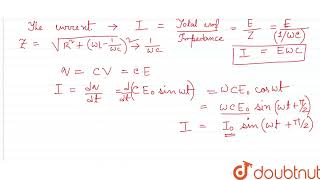 The current → I = Total emf / Impedance = E/Z = E/(1/ωC)
Z = √(R² + (ωL - 1/ωC)²) → 1/ωC
I = EωC
q = CV = CE
I = dq/dt = d/dt (CE₀ sin ωt) = ωCE₀ cos ωt
= ωCE₀ sin(ωt + π/2)
I = I₀ sin(ωt + π/2)
doubtnut